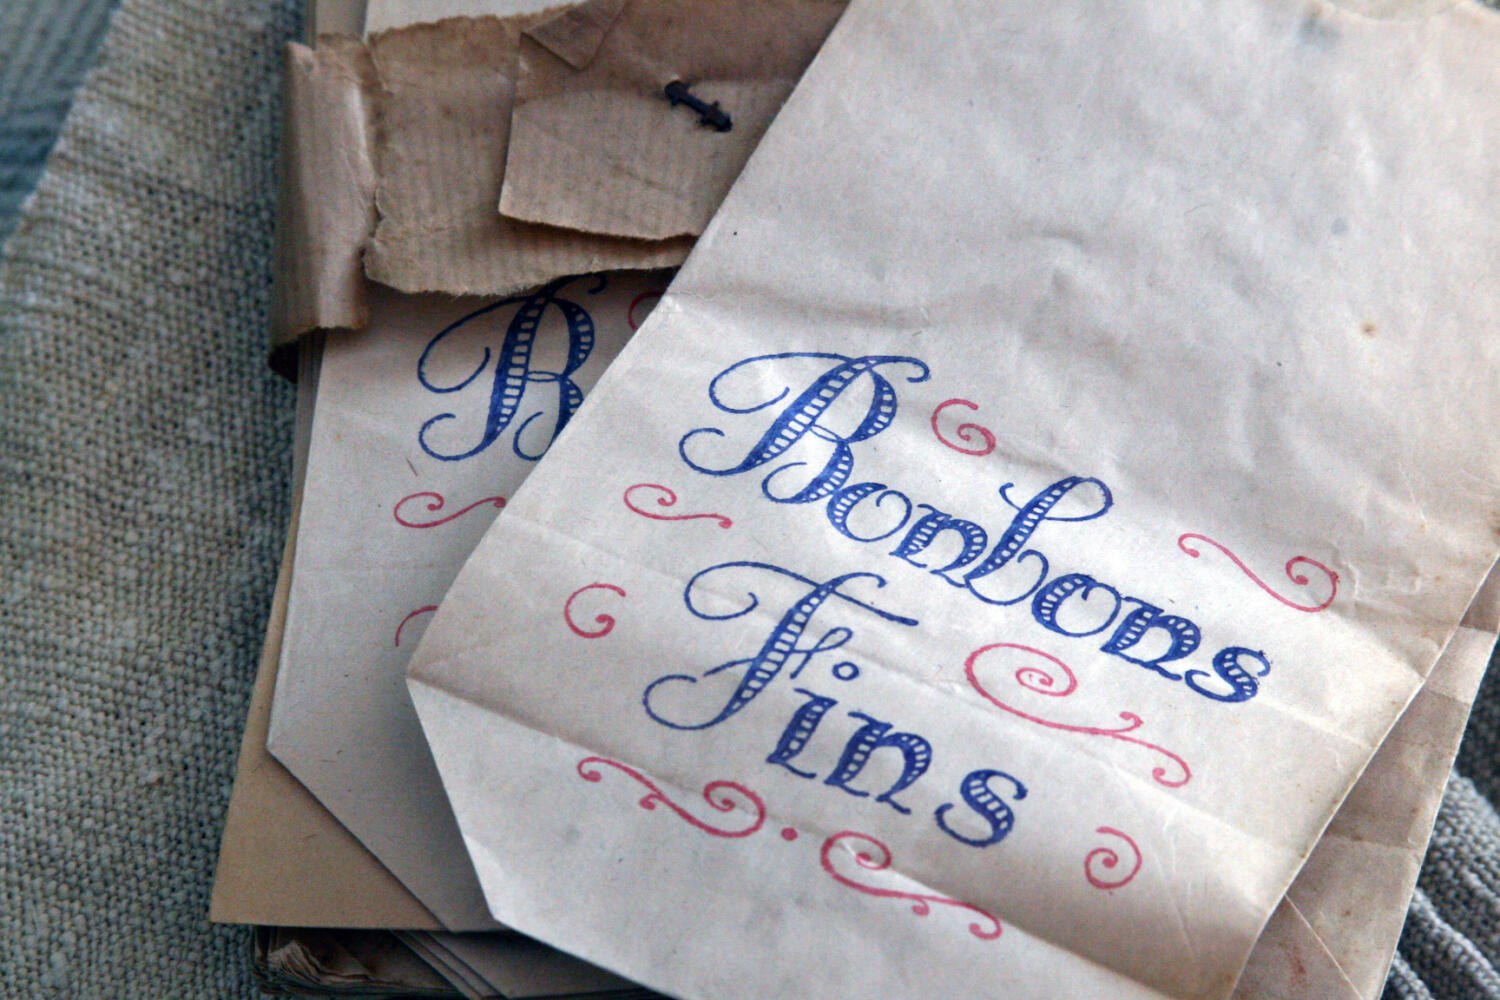 B
Bonbons
Fins